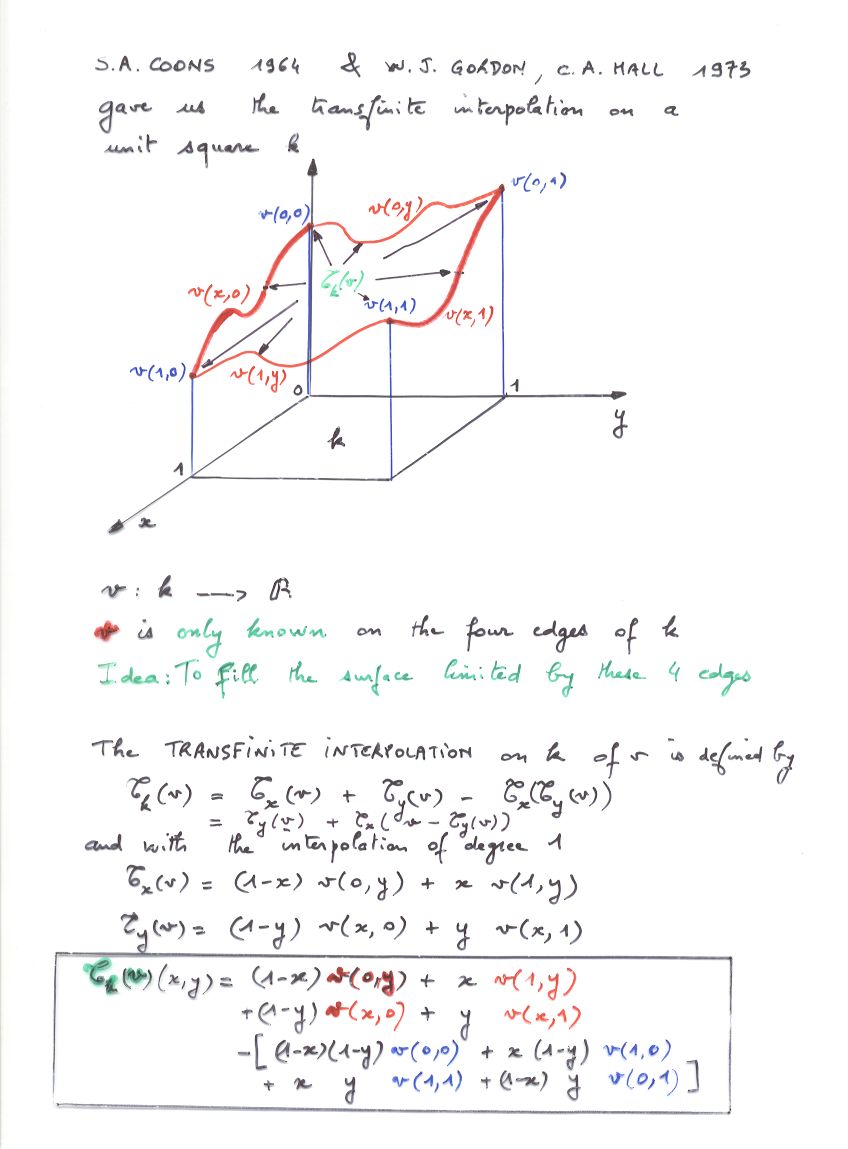 S.A. COONS 1964 & W.J. GORDON, C.A. HALL 1973
gave us the transfinite interpolation on a
unit square k
v(0,1)
v(0,0)
v(0,y)
v(x,0)
𝒯k(v)
v(1,1)
v(x,1)
v(1,0)
v(1,y)
0
1
y
k
1
x
v : k ⟶ ℝ
v is only known on the four edges of k
Idea: To fill the surface limited by these 4 edges
The TRANSFINITE INTERPOLATION on k of v is defined by
𝒯k(v) = 𝒯x(v) + 𝒯y(v) - 𝒯x(𝒯y(v))
= 𝒯y(v) + 𝒯x(v - 𝒯y(v))
and with the interpolation of degree 1
𝒯x(v) = (1-x) v(0,y) + x v(1,y)
𝒯y(v) = (1-y) v(x,0) + y v(x,1)
𝒯k(v)(x,y) = (1-x) v(0,y) + x v(1,y)
+(1-y) v(x,0) + y v(x,1)
-[ (1-x)(1-y) v(0,0) + x (1-y) v(1,0)
+ x y v(1,1) + (1-x) y v(0,1) ]